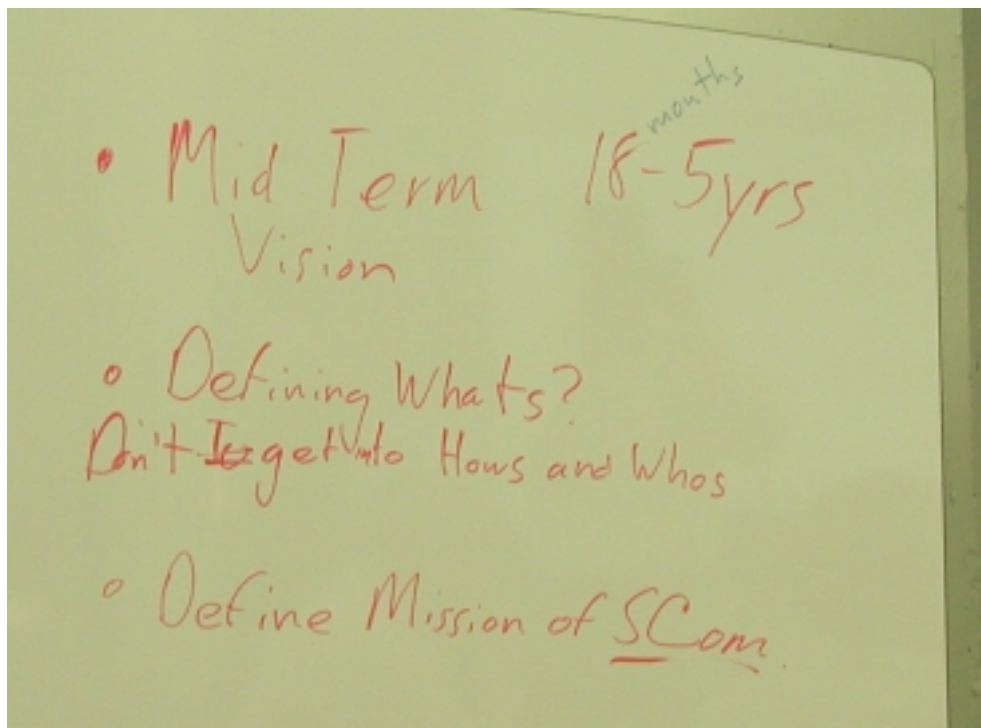 months
• Mid Term 18 - 5yrs
Vision
• Defining Whats?
Don't get into Hows and Whos
• Define Mission of SCom